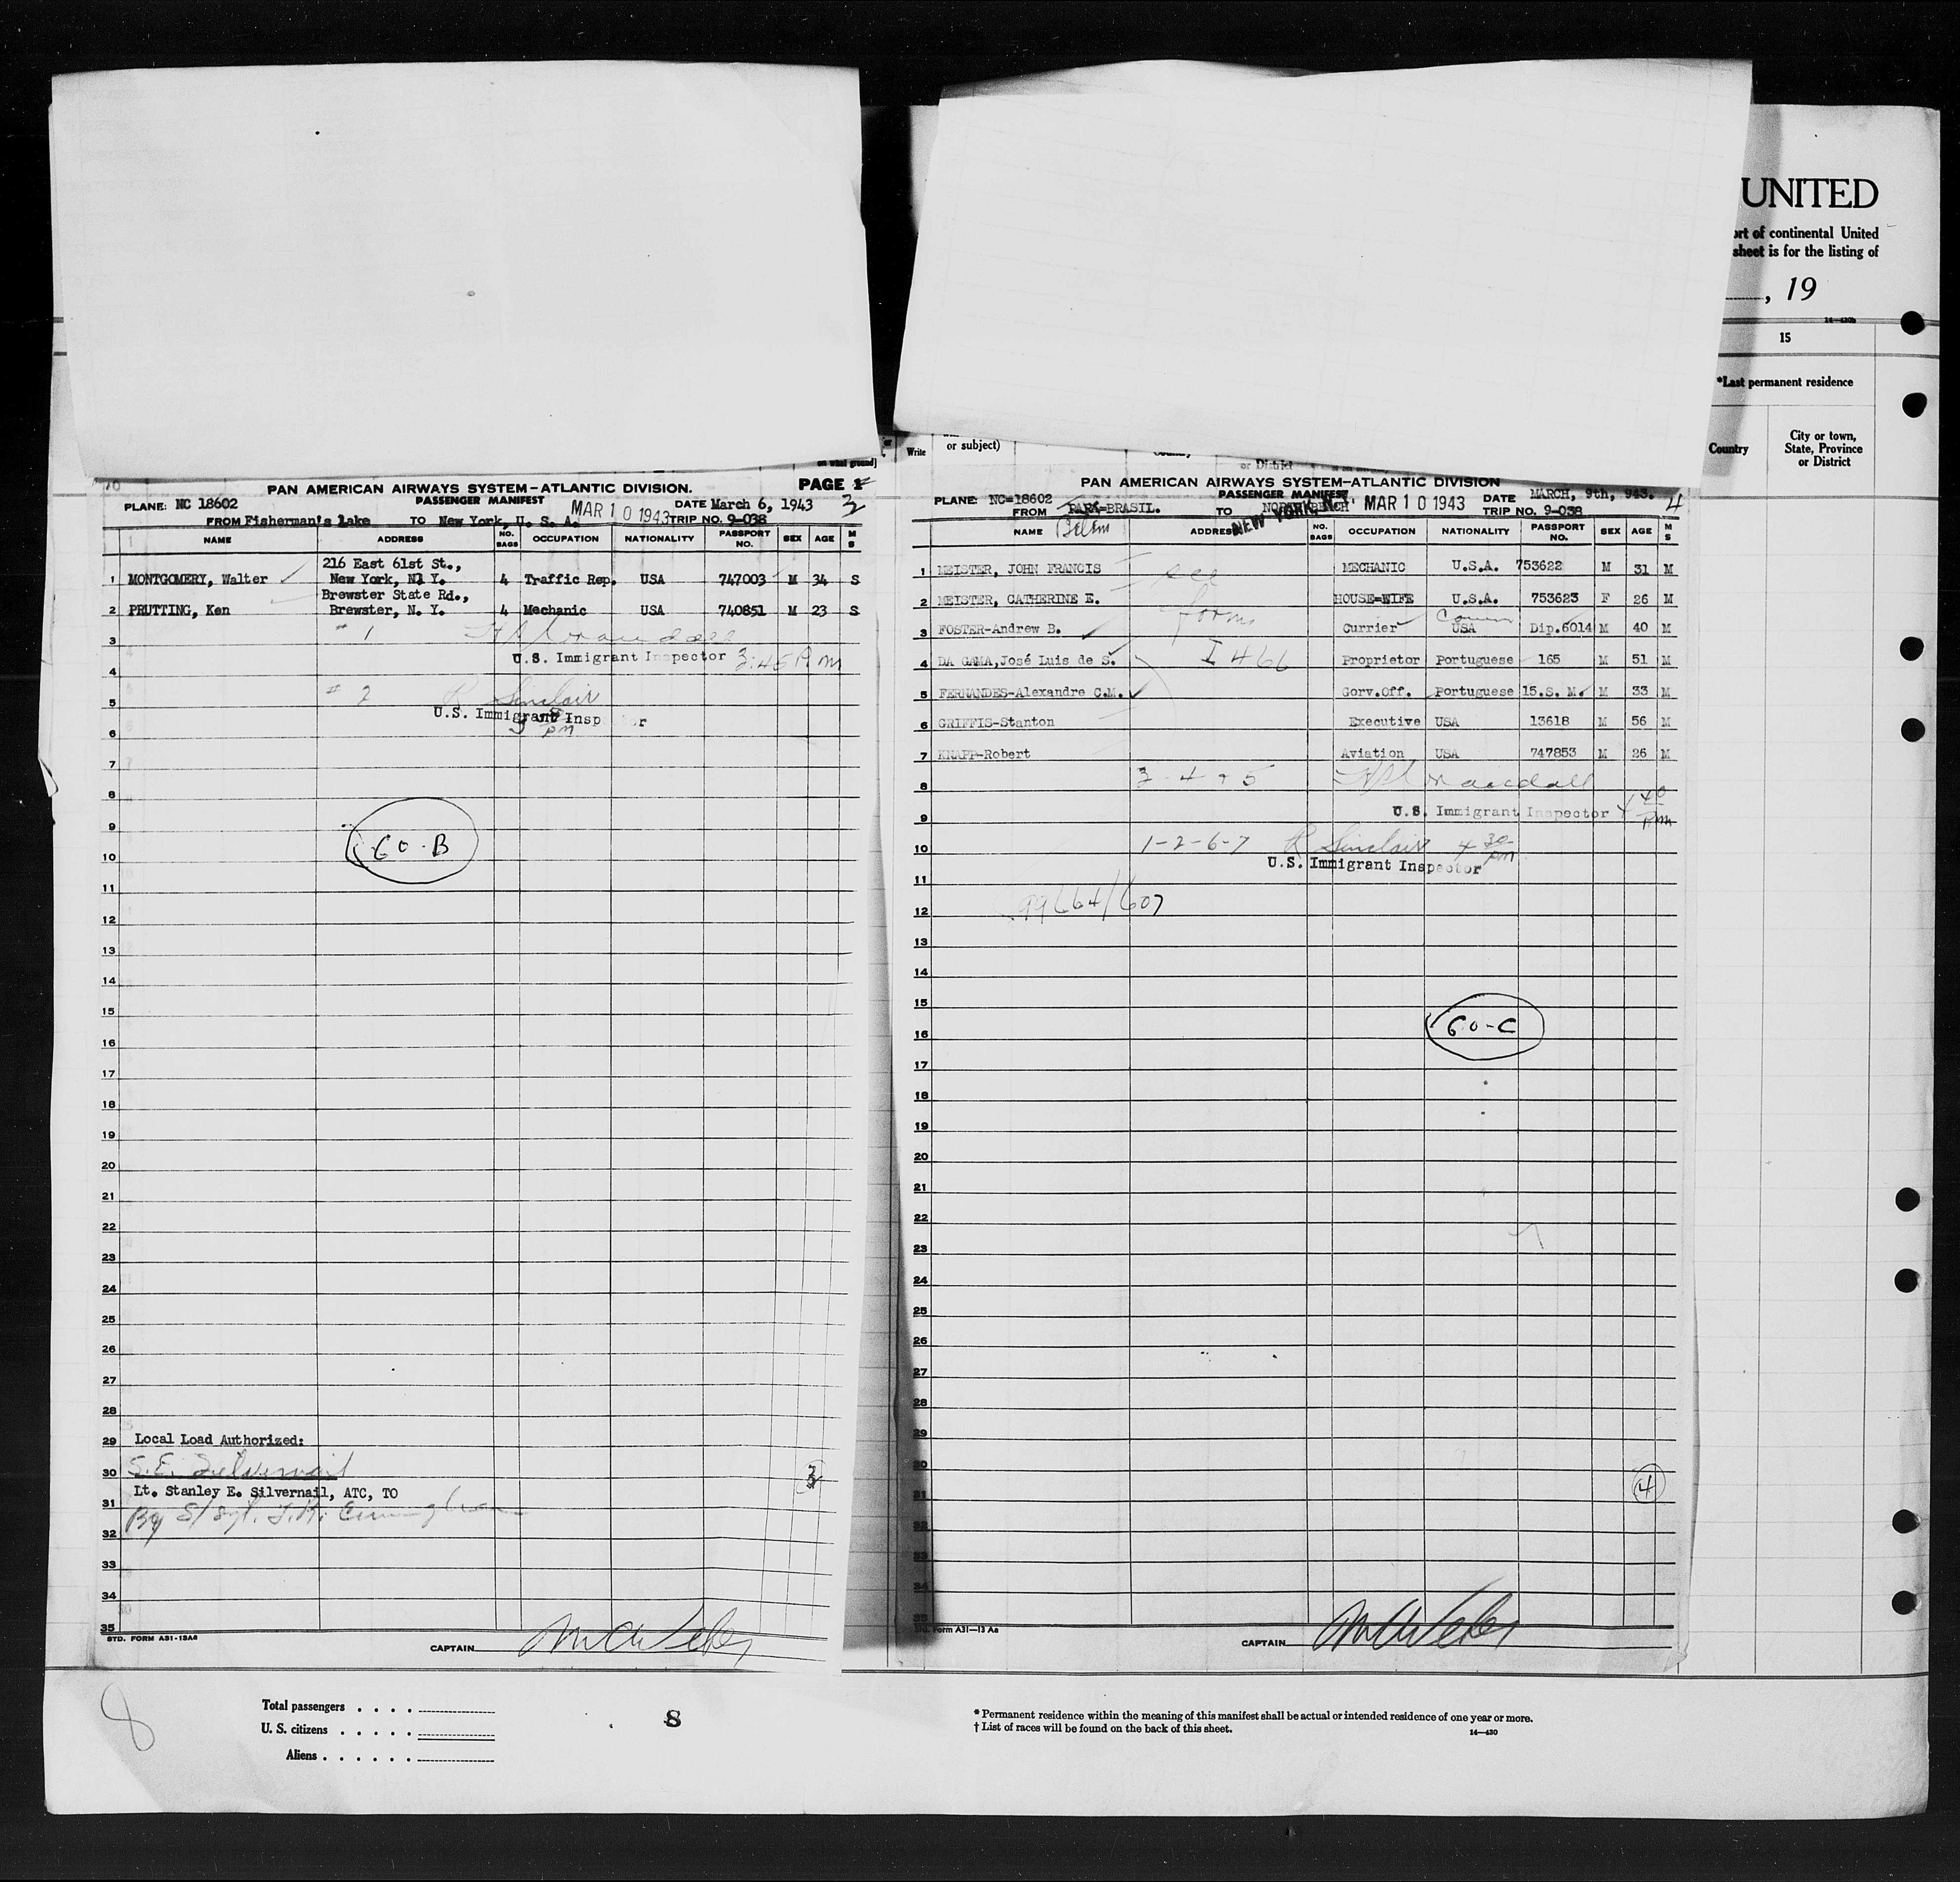 UNITED
ort of continental United
sheet is for the listing of
, 19
14—430b
15
*Last permanent residence
Country
City or town, State, Province or District
or subject)
Write
or District
on what ground]
PAGE 1
3
PAN AMERICAN AIRWAYS SYSTEM—ATLANTIC DIVISION.
PASSENGER MANIFEST
PLANE: NC 18602 MAR 10 1943 DATE March 6, 1943
FROM Fisherman's Lake TO New York, U. S. A. TRIP NO. 9-038
NAME ADDRESS NO. BAGS OCCUPATION NATIONALITY PASSPORT NO. SEX AGE M S
216 East 61st St.,
1 MONTGOMERY, Walter New York, N. Y. 4 Traffic Rep. USA 747003 M 34 S
Brewster State Rd.,
2 PRUTTING, Ken Brewster, N. Y. 4 Mechanic USA 740851 M 23 S
3 # 1
U.S. Immigrant Inspector 3:45 P m
4
5 # 2 R Sinclair
U.S. Immigrant Inspector
6 pm
7
8
9
60-B
10
11
12
13
14
15
16
17
18
19
20
21
22
23
24
25
26
27
28
29 Local Load Authorized:
30 S. E. Silvernail
Lt. Stanley E. Silvernail, ATC, TO
31 By S/Sgt.
32
33
34
35
STD. FORM A31-13A8
CAPTAIN
PAN AMERICAN AIRWAYS SYSTEM—ATLANTIC DIVISION
4
PASSENGER MANIFEST
PLANE: NC=18602 MAR 10 1943 DATE MARCH, 9th, 943.
FROM PARA=BRASIL. TO NORTH BEACH TRIP NO. 9-038
Belem
NEW YORK, N.Y.
NAME ADDRESS NO. BAGS OCCUPATION NATIONALITY PASSPORT NO. SEX AGE M S
1 MEISTER, JOHN FRANCIS MECHANIC U.S.A. 753622 M 31 M
see
2 MEISTER, CATHERINE E. HOUSE=WIFE U.S.A. 753623 F 26 M
form
3 FOSTER-Andrew B. Currier USA Dip.6014 M 40 M
4 DA GAMA,José Luis de S. I 466 Proprietor Portuguese 165 M 51 M
5 FERNANDES-Alexandre C.M. Gorv.Off. Portuguese 15.S. M. M 33 M
6 GRIFFIS-Stanton Executive USA 13618 M 56 M
7 KNAPP-Robert Aviation USA 747853 M 26 M
8 3-4+5
U.S. Immigrant Inspector 4 40 Pm
9
10 1-2-6-7 R Sinclair 4 30 pm
U.S. Immigrant Inspector
11
12 99664/607
13
14
15
16 60-C
17
18
19
20
21
22
23
24
25
26
27
28
29
30
31 4
32
33
34
35
Std. Form A31—13 Aa
CAPTAIN
8
Total passengers . . . .
U. S. citizens . . . . .
Aliens . . . . . .
8
* Permanent residence within the meaning of this manifest shall be actual or intended residence of one year or more.
† List of races will be found on the back of this sheet.
14—430